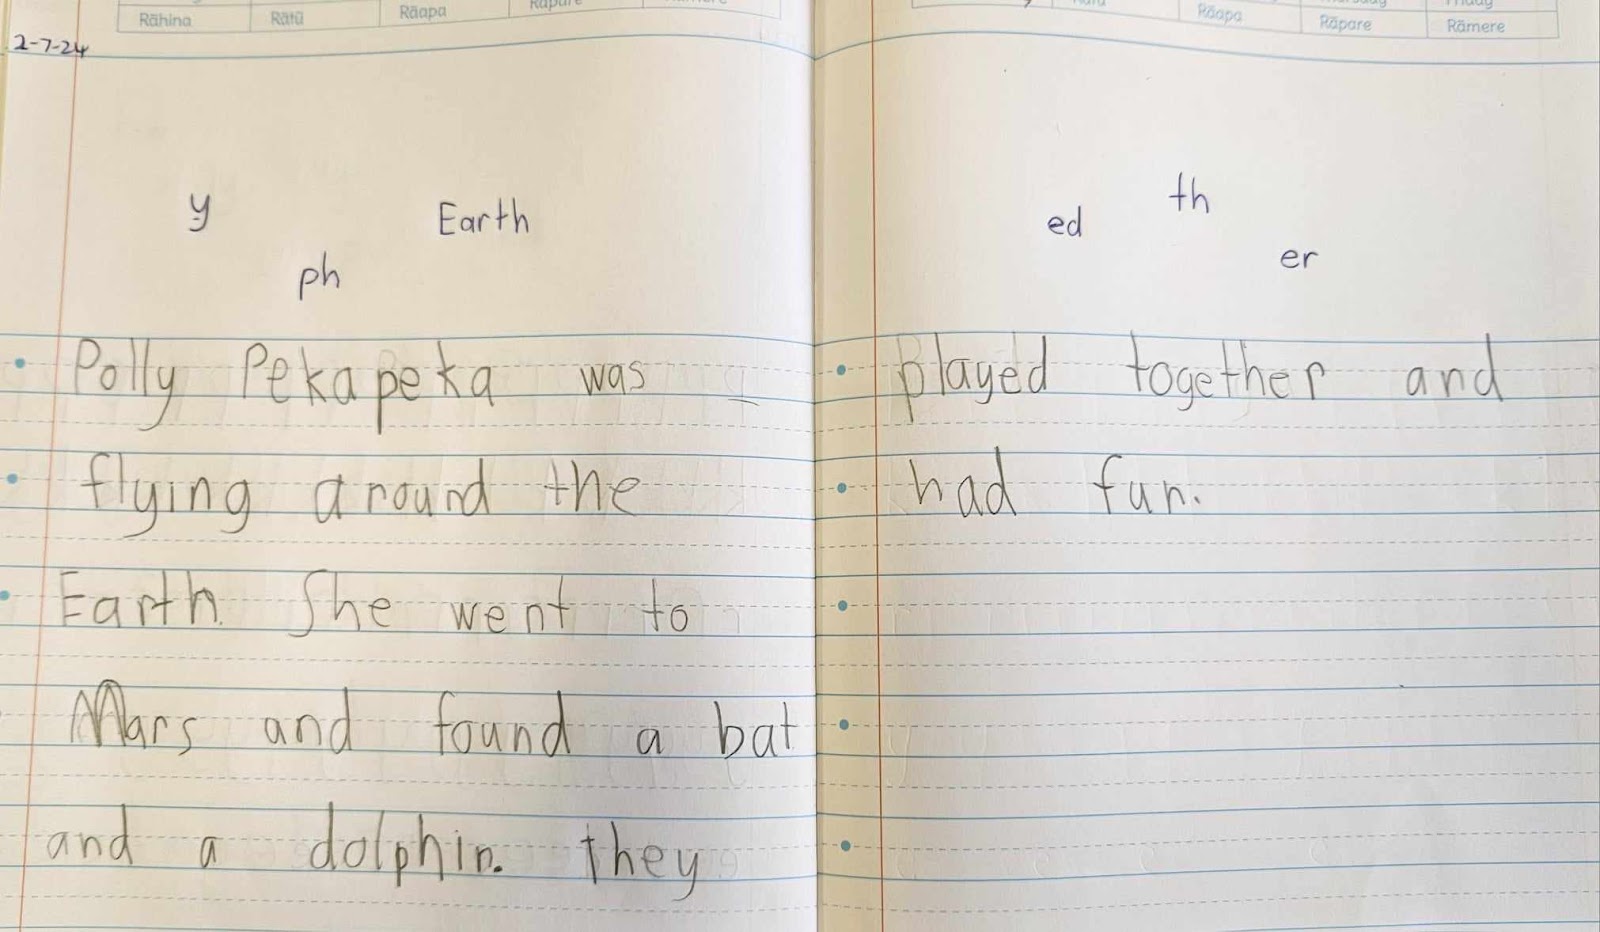 Rāhina Rātū Rāapa Rāpare
2-7-24
y Earth
ph
Polly Pekapeka was
flying around the
Earth. She went to
Mars and found a bat
and a dolphin. they
Rāapa Rāpare Rāmere
th
ed
er
played together and
had fun.